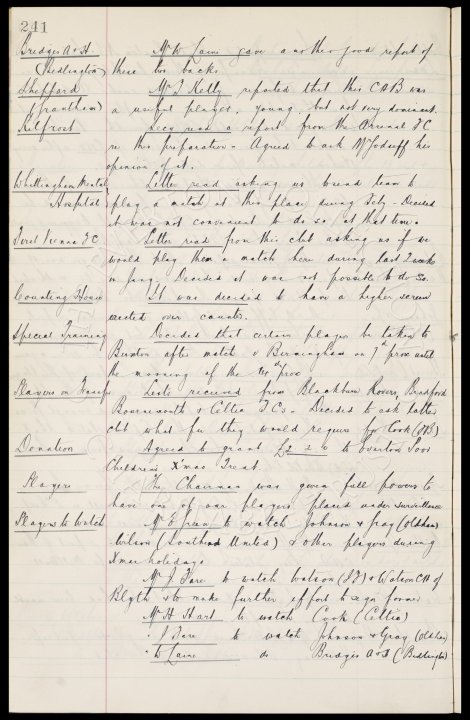 241
Bridges A & H Mr W Laine gave another good report of
(Bedlington) these two backs
Shepherd Mr J Kelly reported that this CHB was
(Grantham) a useful player, young, but not very dominant.
Kilfrost Secy read a report from the Arsenal FC
re this preparation. Agreed to ask Mr his
opinion of it.
Whittingham Mental Letter read asking us to send team to
Hospital play a match at this place during Feby. Decided
it was not convenient to do so at that time.
First Vienna F.C. Letter read from this club asking us if we
would play them a match here during last 2 weeks
in Jany. Decided it was not possible to do so.
Counting House It was decided to have a higher screen
erected over counter.
Special Training Decided that certain players be taken to
Buxton after match v Birmingham on 7th prox until
the morning of the prox
Players on Transfer Lists received from Blackburn Rovers, Bradford
Bournemouth & Celtic F.Cs. Decided to ask latter
club what fee they would require for Cook (FB)
Donation Agreed to grant £2 2 0 to Everton Poor
Childrens Xmas Treat.
Players The Chairman was given full powers to
have one of our players placed under surveillance
Players to Watch Mr E Green to watch Johnson & Gray (Oldham)
Wilson (Southend United) & other players during
Xmas holidays
Mr J Fare to watch Watson (IF) & Watson CH of
Blyth & to make further effort to sign former
Mr H Hart to watch Cook (Celtic)
" J Fare to watch Johnson & Gray (Oldham)
" W Laine do Bridges A & H (Bedlington)